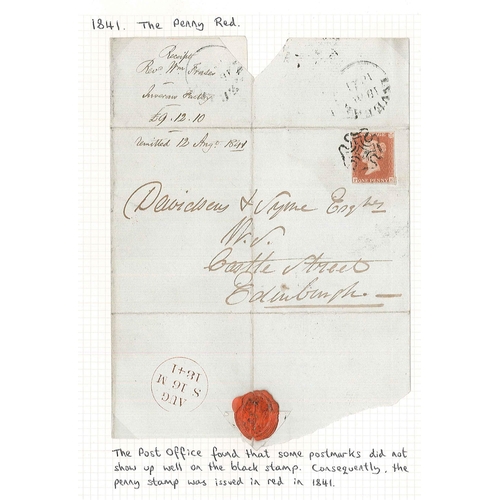 1841. The Penny Red.
Receipt
Revd Wm Fraser
£9.12.10
remitted 12 Augt 1841
ONE PENNY
Davidsons & Syme Esqrs
W.S.
Castle Street
Edinburgh.
AUG
S 16 M
1841
The Post Office found that some postmarks did not
show up well on the black stamp. Consequently, the
penny stamp was issued in red in 1841.